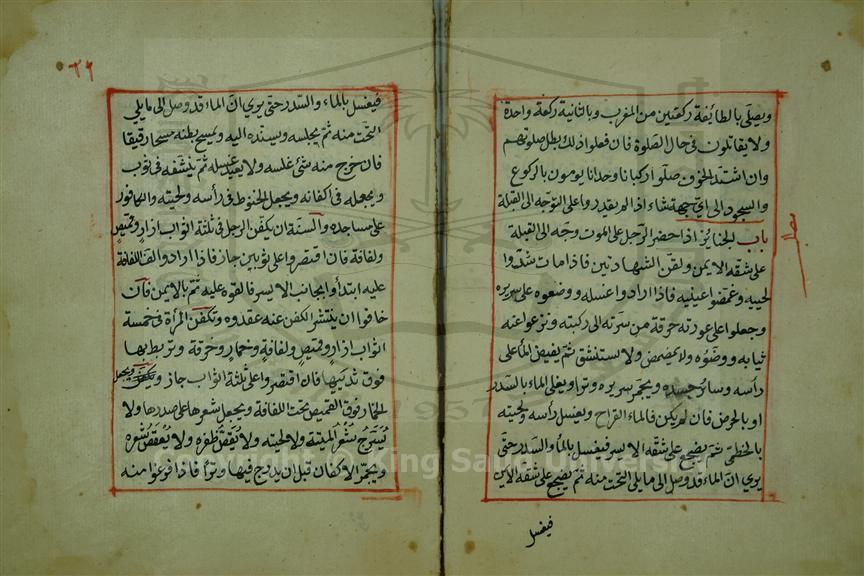 ويصلي بالطائفة ركعتين من المغرب وبالثانية ركعة واحدة
ولا يقاتلون في حال الصلوة فان فعلوا ذلك بطل صلوتهم
وان اشتد الخوف صلوا ركبانا وحدانا يومون بالركوع
والسجود الى اي جهة شاء اذا لم يقدروا على التوجه الى القبلة
باب الجنائز اذا حضر الرجل على الموت وجه الى القبيلة
على شقه الايمن ولقن الشهادتين فاذا مات شدوا
لحييه وغمضوا عينيه فاذا ارادوا غسله ووضعوه على سريره
وجعلوا على عورته خرقة من سرته الى ركبته ونزعوا عنه
ثيابه ووضوه ولا يمضمض ولا يستنشق ثم يفيض الماء على
رأسه وسائر جسده ويجمر سريره وترا ويغلى الماء بالسدر
او بالحرض فان لم يكن فالماء القراح ويغسل رأسه ولحيته
بالخطمى ثم يضجع على شقه الايسر فيغسل بالماء والسدر حتى
يرى ان الماء قد وصل الى ما يلي التحت منه ثم يضجع على شقه الايمن
فيغسل
٢٦
فيغسل بالماء والسدر حتى يرى ان الماء قد وصل الى ما يلي
التحت منه ثم يجلسه ويسنده اليه ويمسح بطنه مسحا رقيقا
فان خرج منه شئ غسله ولا يعيد غسله ثم ينشفه في ثوب
ويجعله في اكفانه ويجعل الحنوط في رأسه ولحيته والكافور
على مساجده والسنة ان يكفن الرجل في ثلثة اثواب ازار وقميص
ولفافة فان اقتصروا على ثوبين جاز فاذا ارادوا لف اللفافة
عليه ابتدأوا بجانب الايسر فالقوه عليه ثم بالايمن فان
خافوا ان ينتشر الكفن عنه عقدوه وتكفن المرأة في خمسة
اثواب ازار وقميص ولفافة وخمار وخرقة وتربط بها
فوق ثدييها فان اقتصروا على ثلثة اثواب جاز ويجعل
الخمار فوق القميص تحت اللفافة ويجعل شعرها على صدرها ولا
تسرح شعر الميتة ولا لحيته ولا يقص ظفره ولا يعقص شعره
ويجمر الاكفان قبل ان يدرج فيها وترا فاذا فرغوا منه
Copyright © King Saud University
1957